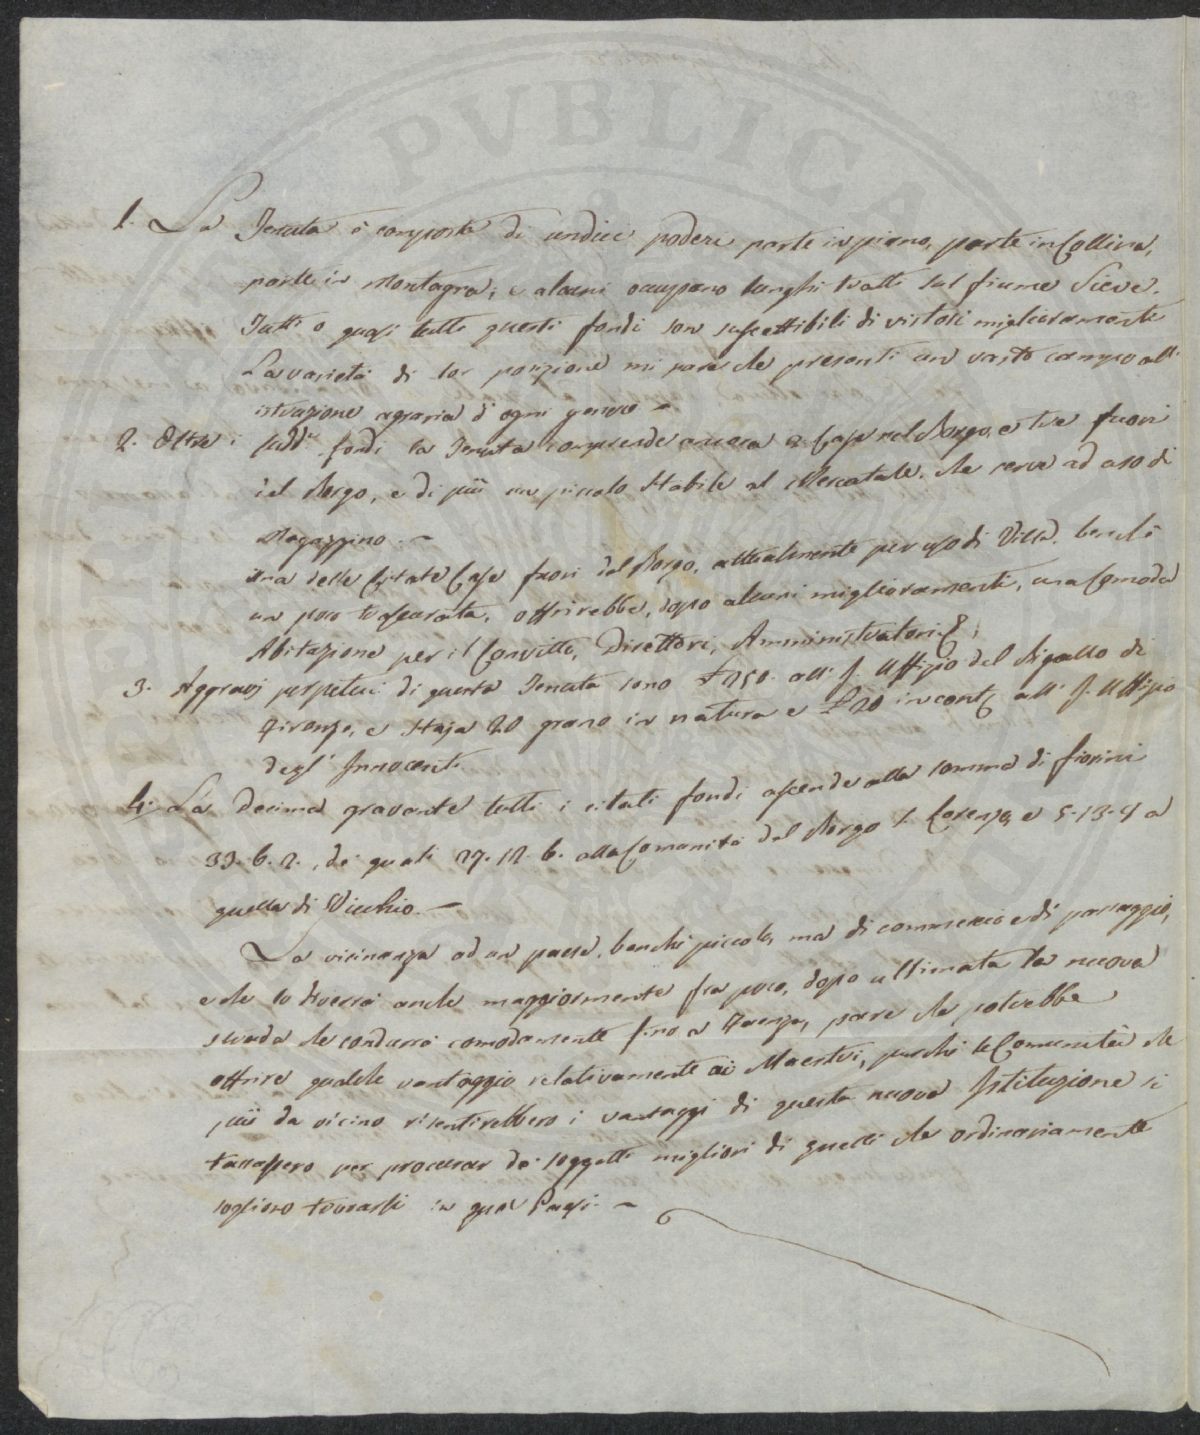 1. La Tenuta è composta di undici poderi parte in piano, parte in Collina,
parte in Montagna; e alcuni occupano lunghi tratti sul fiume Sieve.
Tutti o quasi tutti questi fondi son suscettibili di vistosi miglioramenti
La varietà di lor posizione mi pare che presenti un vasto campo all'
istruzione agraria d'ogni genere –
2. Oltre i sudd.i fondi la Tenuta comprende ancora 2 Case nel Borgo, e tre fuori
del Borgo, e di più un piccolo stabile al Mercatale, che serve ad uso di
Magazzino. –
Una delle citate Case fuori del Borgo, attualmente per uso di Villa, benchè
un poco trascurata, offrirebbe, dopo alcuni miglioramenti, una comoda
Abitazione per il Convitto, Direttori, Amministratori &;
3. Aggravj perpetui di questa Tenuta sono £ 250. all' I. Uffizio del Bigallo di
Firenze, e staja 20 grano in natura e £ 20 in cont. all' I. Uffizio
degl' Innocenti
4. La Decima gravante tutti i citati fondi ascende alla somma di fiorini
33. 6. 2., de' quali 27. 12. 6. alla Comunità del Borgo S. Lorenzo, e 5. 13. 8 a
quella di Vicchio. –
La vicinanza ad un paese, benchè piccolo, ma di commercio e di passaggio,
e che lo diverrà anche maggiormente fra poco, dopo ultimata la nuova
strada che condurrà comodamente fino a Faenza, pare che potrebbe
offrire qualche vantaggio relativamente ai Maestri, perchè le Comunità che
più da vicino risentirebbero i vantaggi di questa nuova Istituzione si
tassassero per procurar de' soggetti migliori di quelli che ordinariamente
sogliono trovarsi in quei Paesi. –
PVBLICA